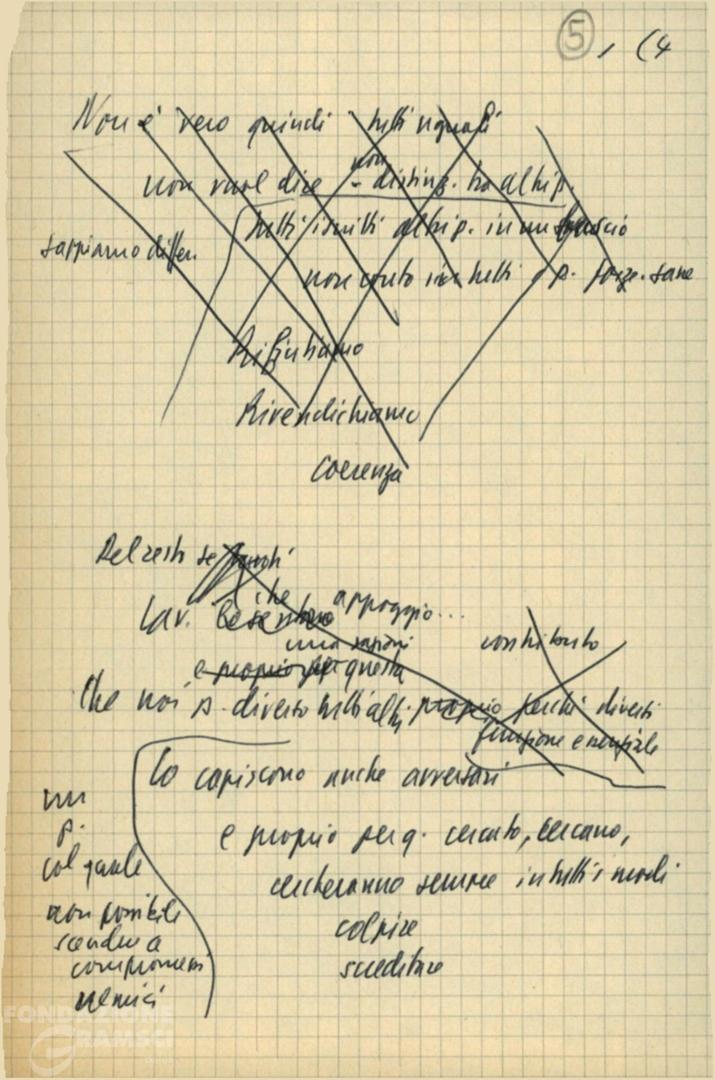 5, (4
Non è vero quindi tutti uguali
non vuol dire - non disting. tra altri p.
tutti iscritti altri p. in un fascio
sappiamo differ.
non conto in tutti p. forze sane
Rifiutiamo
Rivendichiamo
coerenza
Del resto se
Lav. che appoggio...
una ragioni
contributo
e proprio per questa
Che noi p. diverso tutti altri proprio perché diversi
funzione essenziale
Lo capiscono anche avversari
un
p.
e proprio per q. cercato, cercano,
col quale
cercheranno sempre in tutti i modi
non possibile
colpire
scendere a
compromessi
screditare
nemici
FONDAZIONE
GRAMSCI